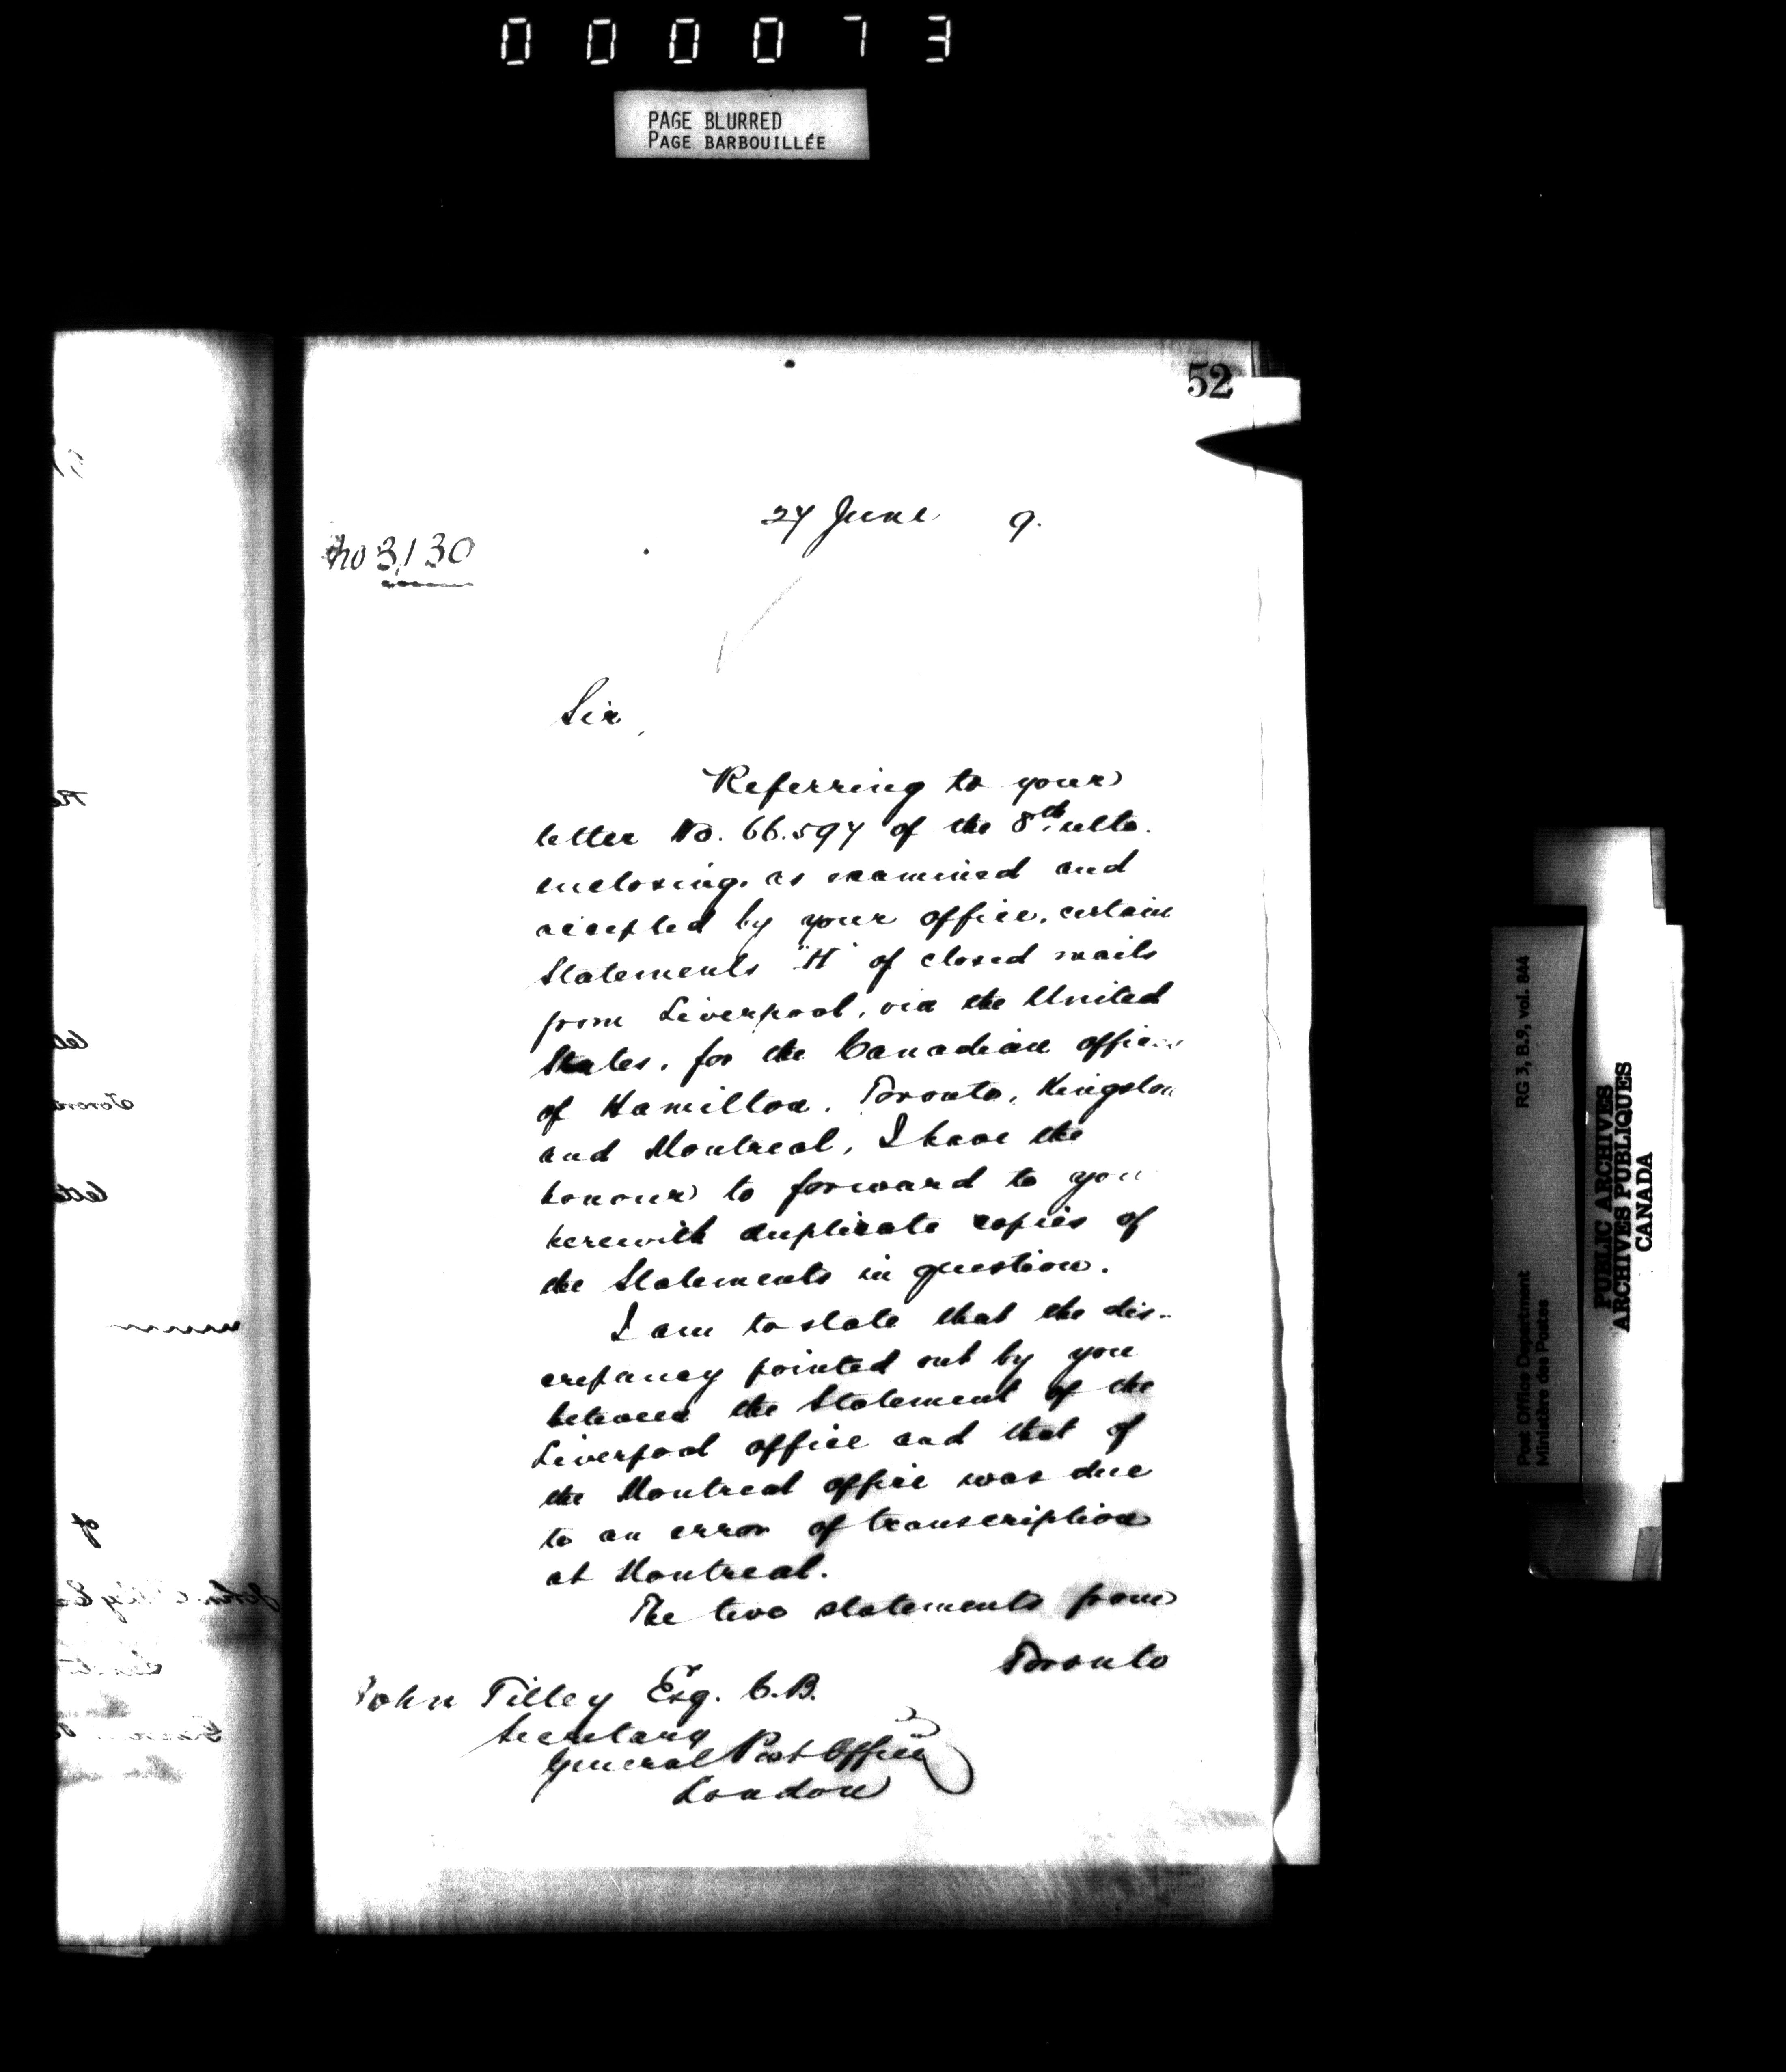 000073
PAGE BLURRED
PAGE BARBOUILLÉE
52
27 June 9.
No 3,130
Sir,
Referring to your
letter No. 66.597 of the 8th ulto.
enclosing, as examined and
accepted by your office, certain
Statements "H" of closed mails
from Liverpool, via the United
States, for the Canadian offices
of Hamilton, Toronto, Kingston
and Montreal, I have the
honour to forward to you
herewith duplicate copies of
the Statements in question.
I am to state that the dis-
crepancy pointed out by you
between the Statement of the
Liverpool office and that of
the Montreal office was due
to an error of transcription
at Montreal.
The two statements from
Toronto
John Tilley Esq. C.B.
Secretary
General Post Office
London
Post Office Department RG 3, B.9, vol. 844
Ministère des Postes
PUBLIC ARCHIVES
ARCHIVES PUBLIQUES
CANADA